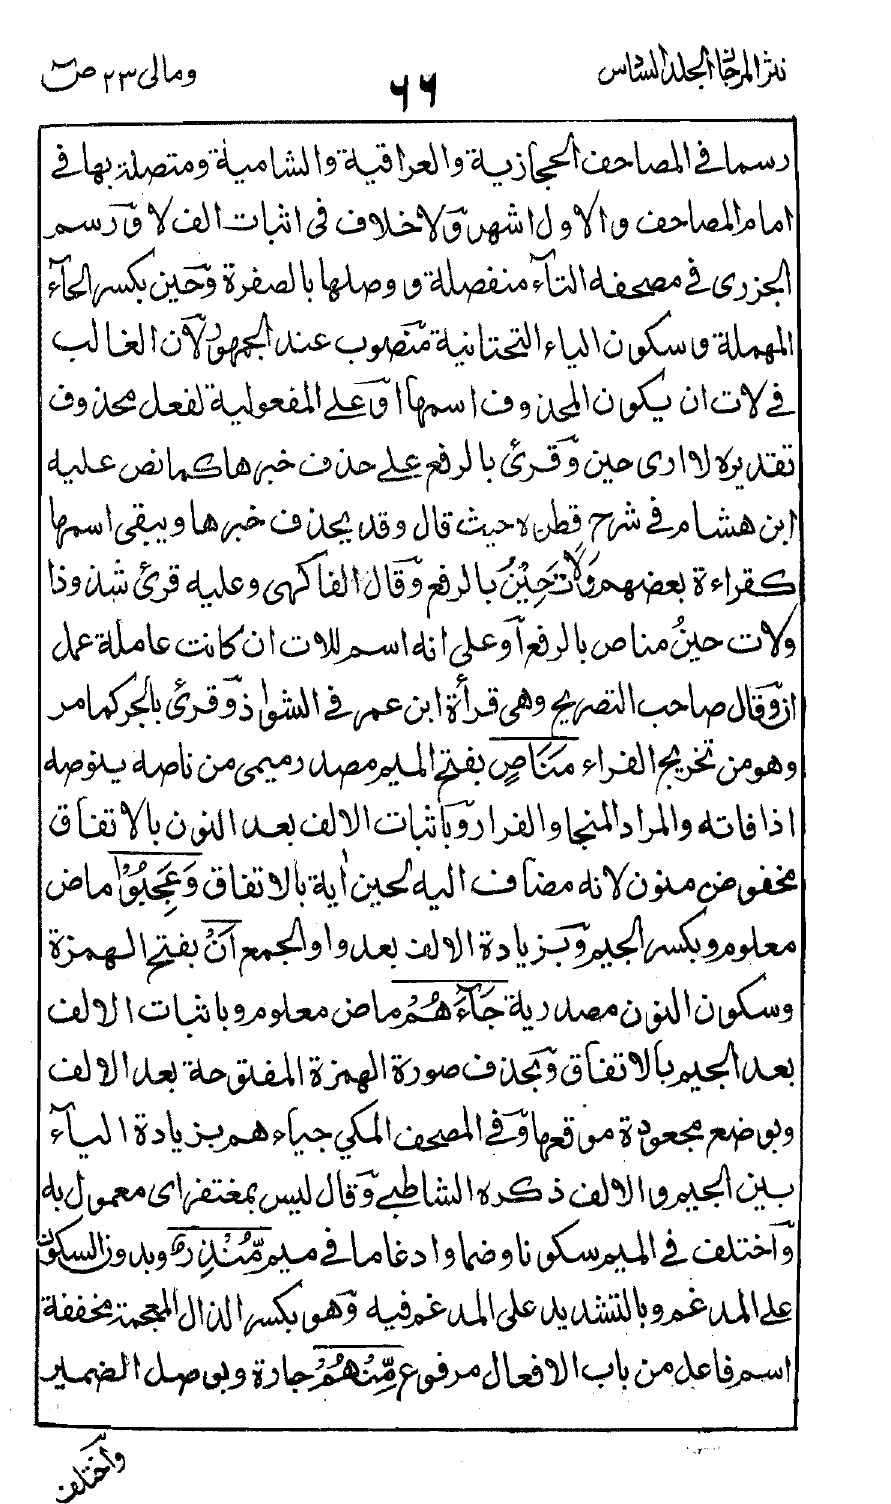 نثر المرجان الجلد السادس
٦٦
ومالى ٢٣ ص
رسما فى المصاحف الحجازية والعراقية والشامية ومتصلة بها فى
امام المصاحف والاول اشهر وّلاخلاف فى اثبات الف لا وّرسم
الجزرى فى مصحفه التآء منفصلة و وصلها بالصفرة وّحين بكسر الحآء
المهملة وسكون الياء التحتانية منّصوب عند الجمهور لآن الغالب
فى لات ان يكون المحذوف اسمها اوّعلى المفعولية لفعل محذوف
تقديره لا ارى حين وّقرئ بالرفع على حذف خبرها كما نص عليه
ابن هشام فى شرح قطره حيث قال وقد يحذف خبرها ويبقى اسمها
كقراءة بعضهم وَلَاتَ حِيْنُ بالرفع وّقال الفاكهى وعليه قرئ شذوذا
ولات حينُ مناص بالرفع آوعلى انه اسم للات ان كانت عاملة عمل
انّ وّقال صاحب التصريح وهى قرأة ابن عمر فى الشواذ وّقرئ بالجر كما مر
وهو من تخريج الفراء مَنَاصٍ بفتح الميم مصدر ميمى من ناصه ينوصه
اذا فاته والمراد المنجا والفرار وّباثبات الالف بعد النون بالاتفاق
مخفوض منون لانه مضاف اليه لحين اٰية بالاتفاق وَعَجِبُوْٓا ماض
معلوم وبكسر الجيم وّبزيادة الالف بعد واو الجمع اَنْ بفتح الهمزة
وسكون النون مصدرية جَآءَهُمْ ماض معلوم وباثبات الالف
بعد الجيم بالاتفاق وّبحذف صورة الهمزة المفتوحة بعد الالف
وبوضع مجعودة موقعها وّفى المصحف المكى جياءهم بزيادة اليآء
بين الجيم والالف ذكره الشاطبى وّقال ليس بمغتفر اى معمول به
وّاختلف فى الميم سكونا وضما وادغاما فى ميم مُّنْذِرٌ وبدون السكون
على المدغم وبالتشديد على المدغم فيه وّهو بكسر الذال المعجمة مخففة
اسم فاعل من باب الافعال مرفوع مِّنْهُمْ جارة وبوصل الضمير
وّاختلف